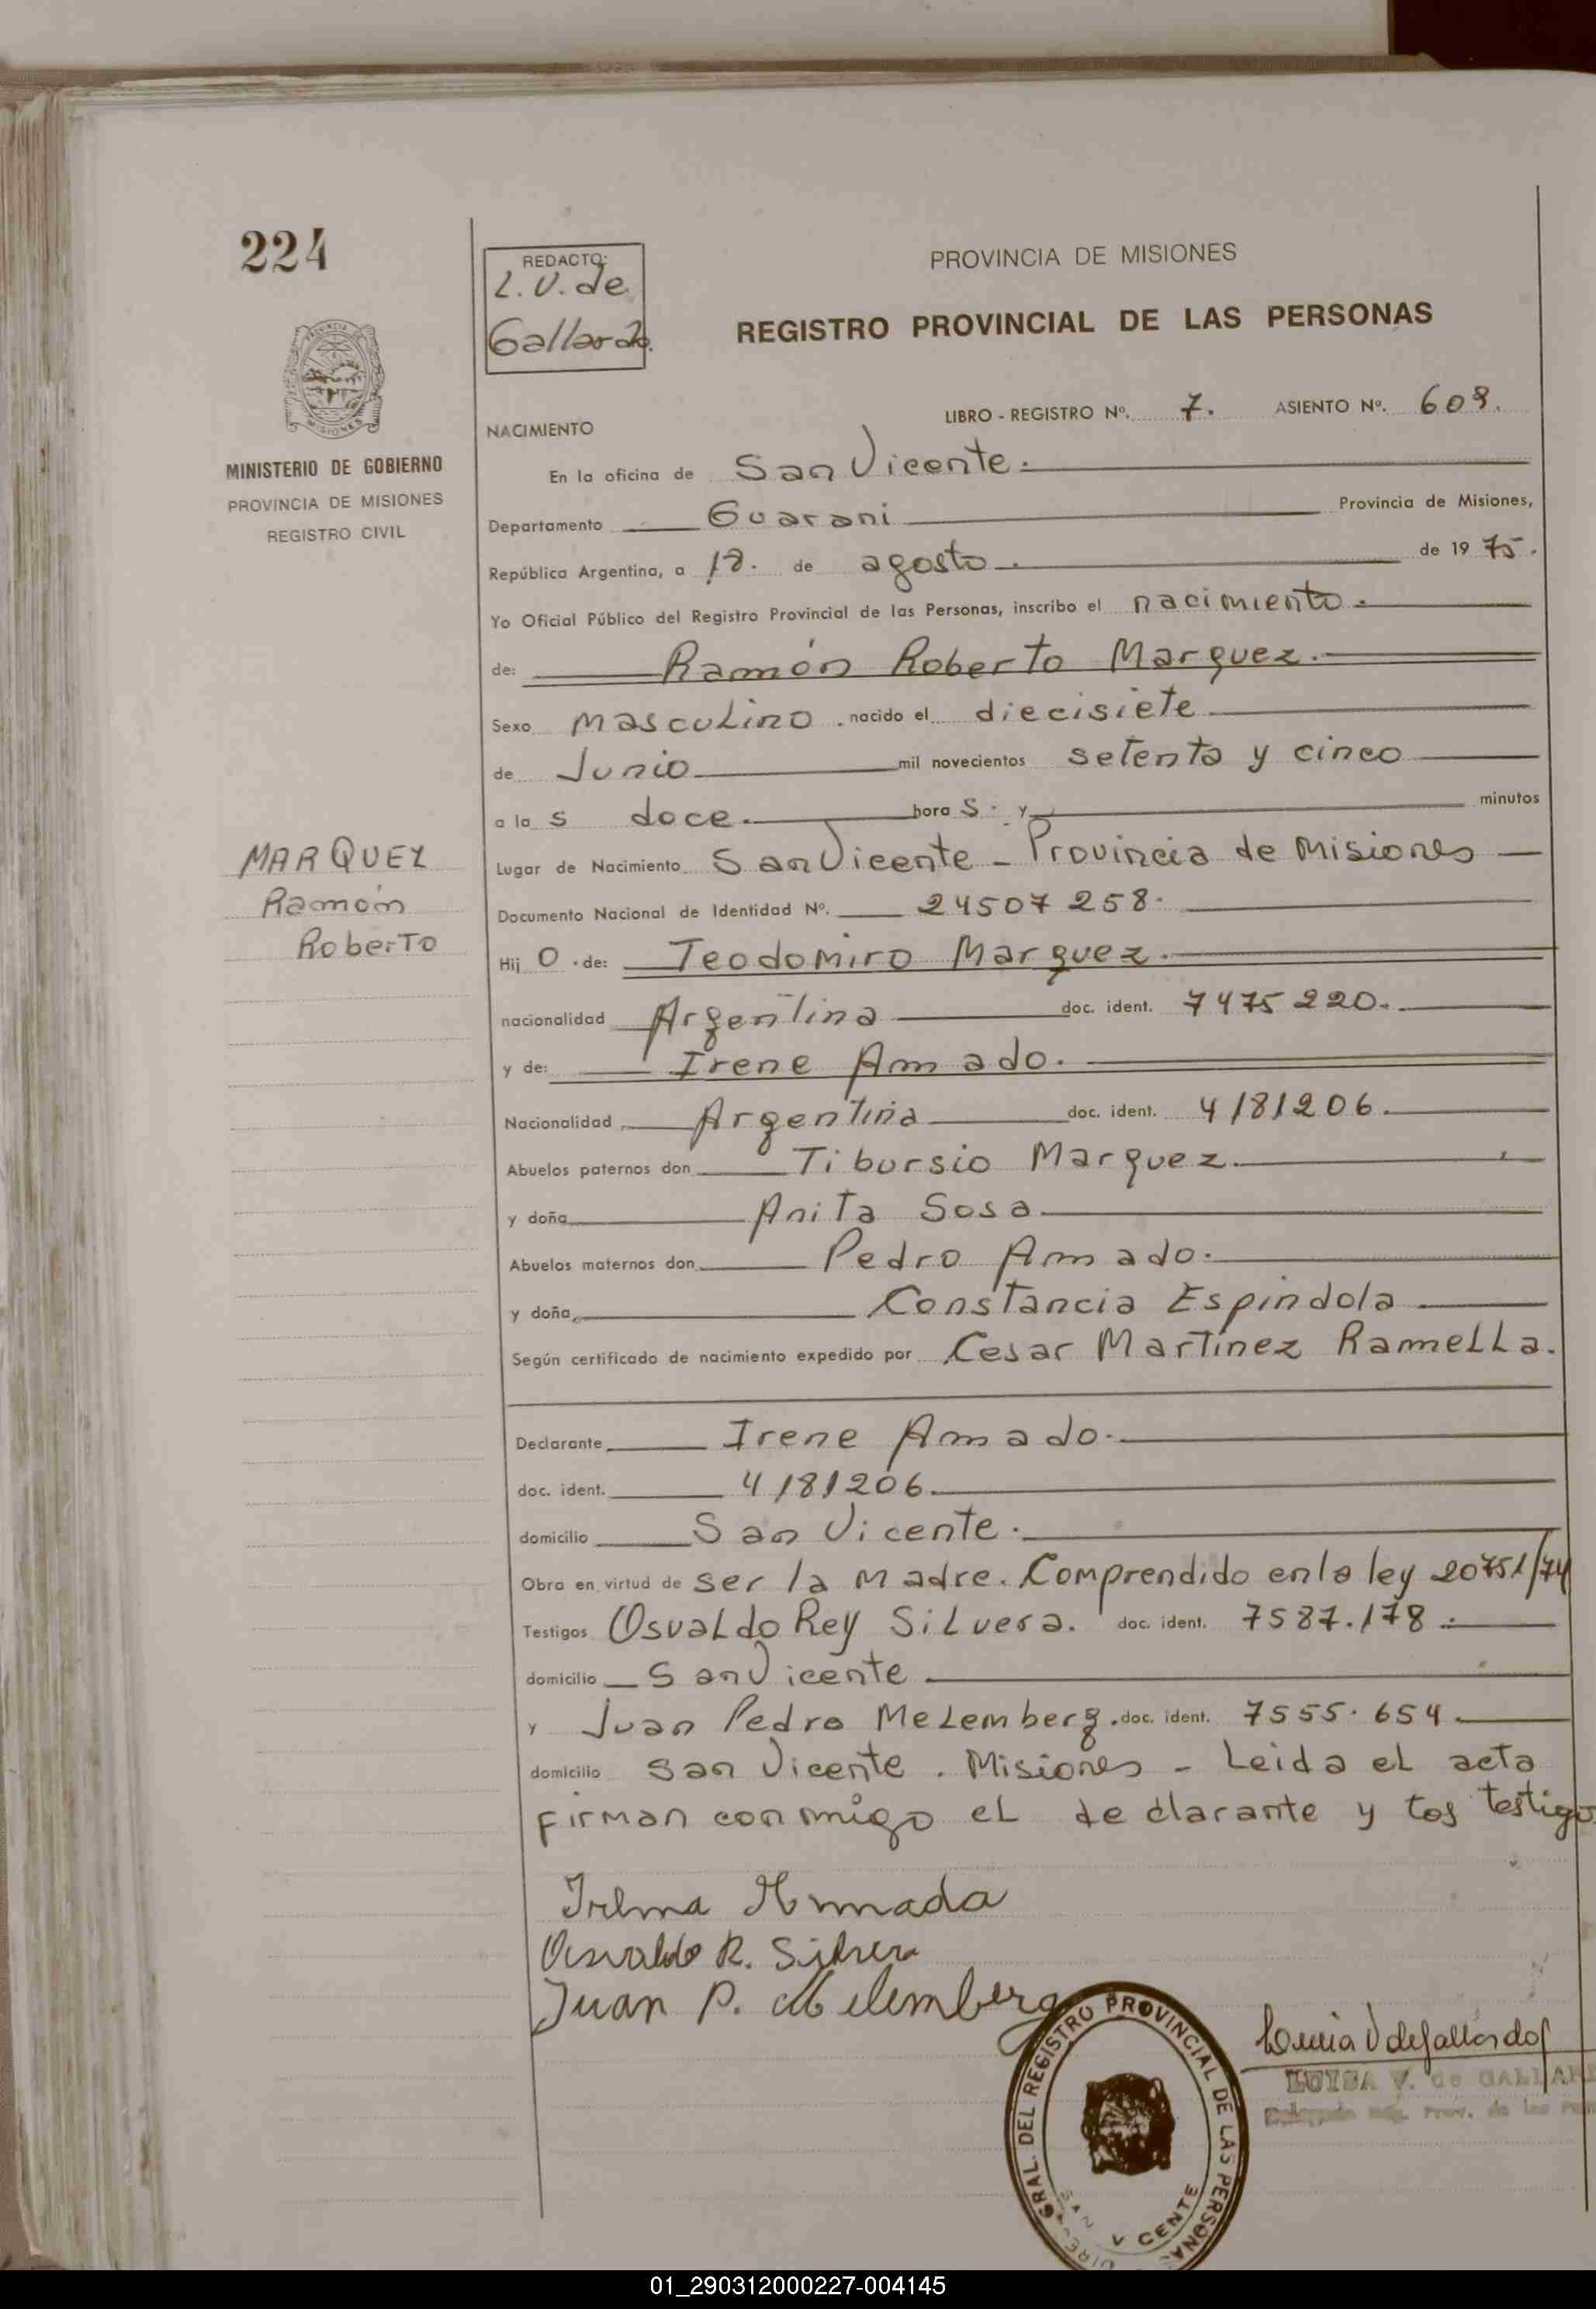 224
REDACTO:
L.V. de
Gallardo.
PROVINCIA DE MISIONES
REGISTRO PROVINCIAL DE LAS PERSONAS
MINISTERIO DE GOBIERNO
PROVINCIA DE MISIONES
REGISTRO CIVIL
LIBRO - REGISTRO Nº. 7. ASIENTO Nº. 608.
NACIMIENTO
En la oficina de San Vicente.
Departamento Guarani Provincia de Misiones,
República Argentina, a 18. de agosto. de 1975.
Yo Oficial Público del Registro Provincial de las Personas, inscribo el nacimiento.
de: Ramón Roberto Marquez.
Sexo masculino. nacido el diecisiete
de Junio mil novecientos setenta y cinco
a las doce. horas. y minutos
MARQUEZ
Ramón
Roberto
Lugar de Nacimiento San Vicente - Provincia de Misiones
Documento Nacional de Identidad Nº. 24507258.
Hijo de: Teodomiro Marquez.
nacionalidad Argentina doc. ident. 7475220.
y de: Irene Amado.
Nacionalidad Argentina doc. ident. 4181206.
Abuelos paternos don Tibursio Marquez.
y doña Anita Sosa
Abuelos maternos don Pedro Amado.
y doña Constancia Espindola
Según certificado de nacimiento expedido por Cesar Martinez Ramella.
Declarante Irene Amado.
doc. ident. 4181206.
domicilio San Vicente.
Obra en virtud de ser la madre. Comprendido en la ley 20751/74
Testigos Osvaldo Rey Silvera. doc. ident. 7587.178.
domicilio San Vicente
y Juan Pedro Melemberg. doc. ident. 7555.654.
domicilio San Vicente. Misiones - Leida el acta
firman conmigo el declarante y los testigos
Osvaldo R. Silvera
Juan P. Melemberg
GRAL. DEL REGISTRO PROVINCIAL DE LAS PERSONAS
LUISA V. de GALLAR
01_290312000227-004145